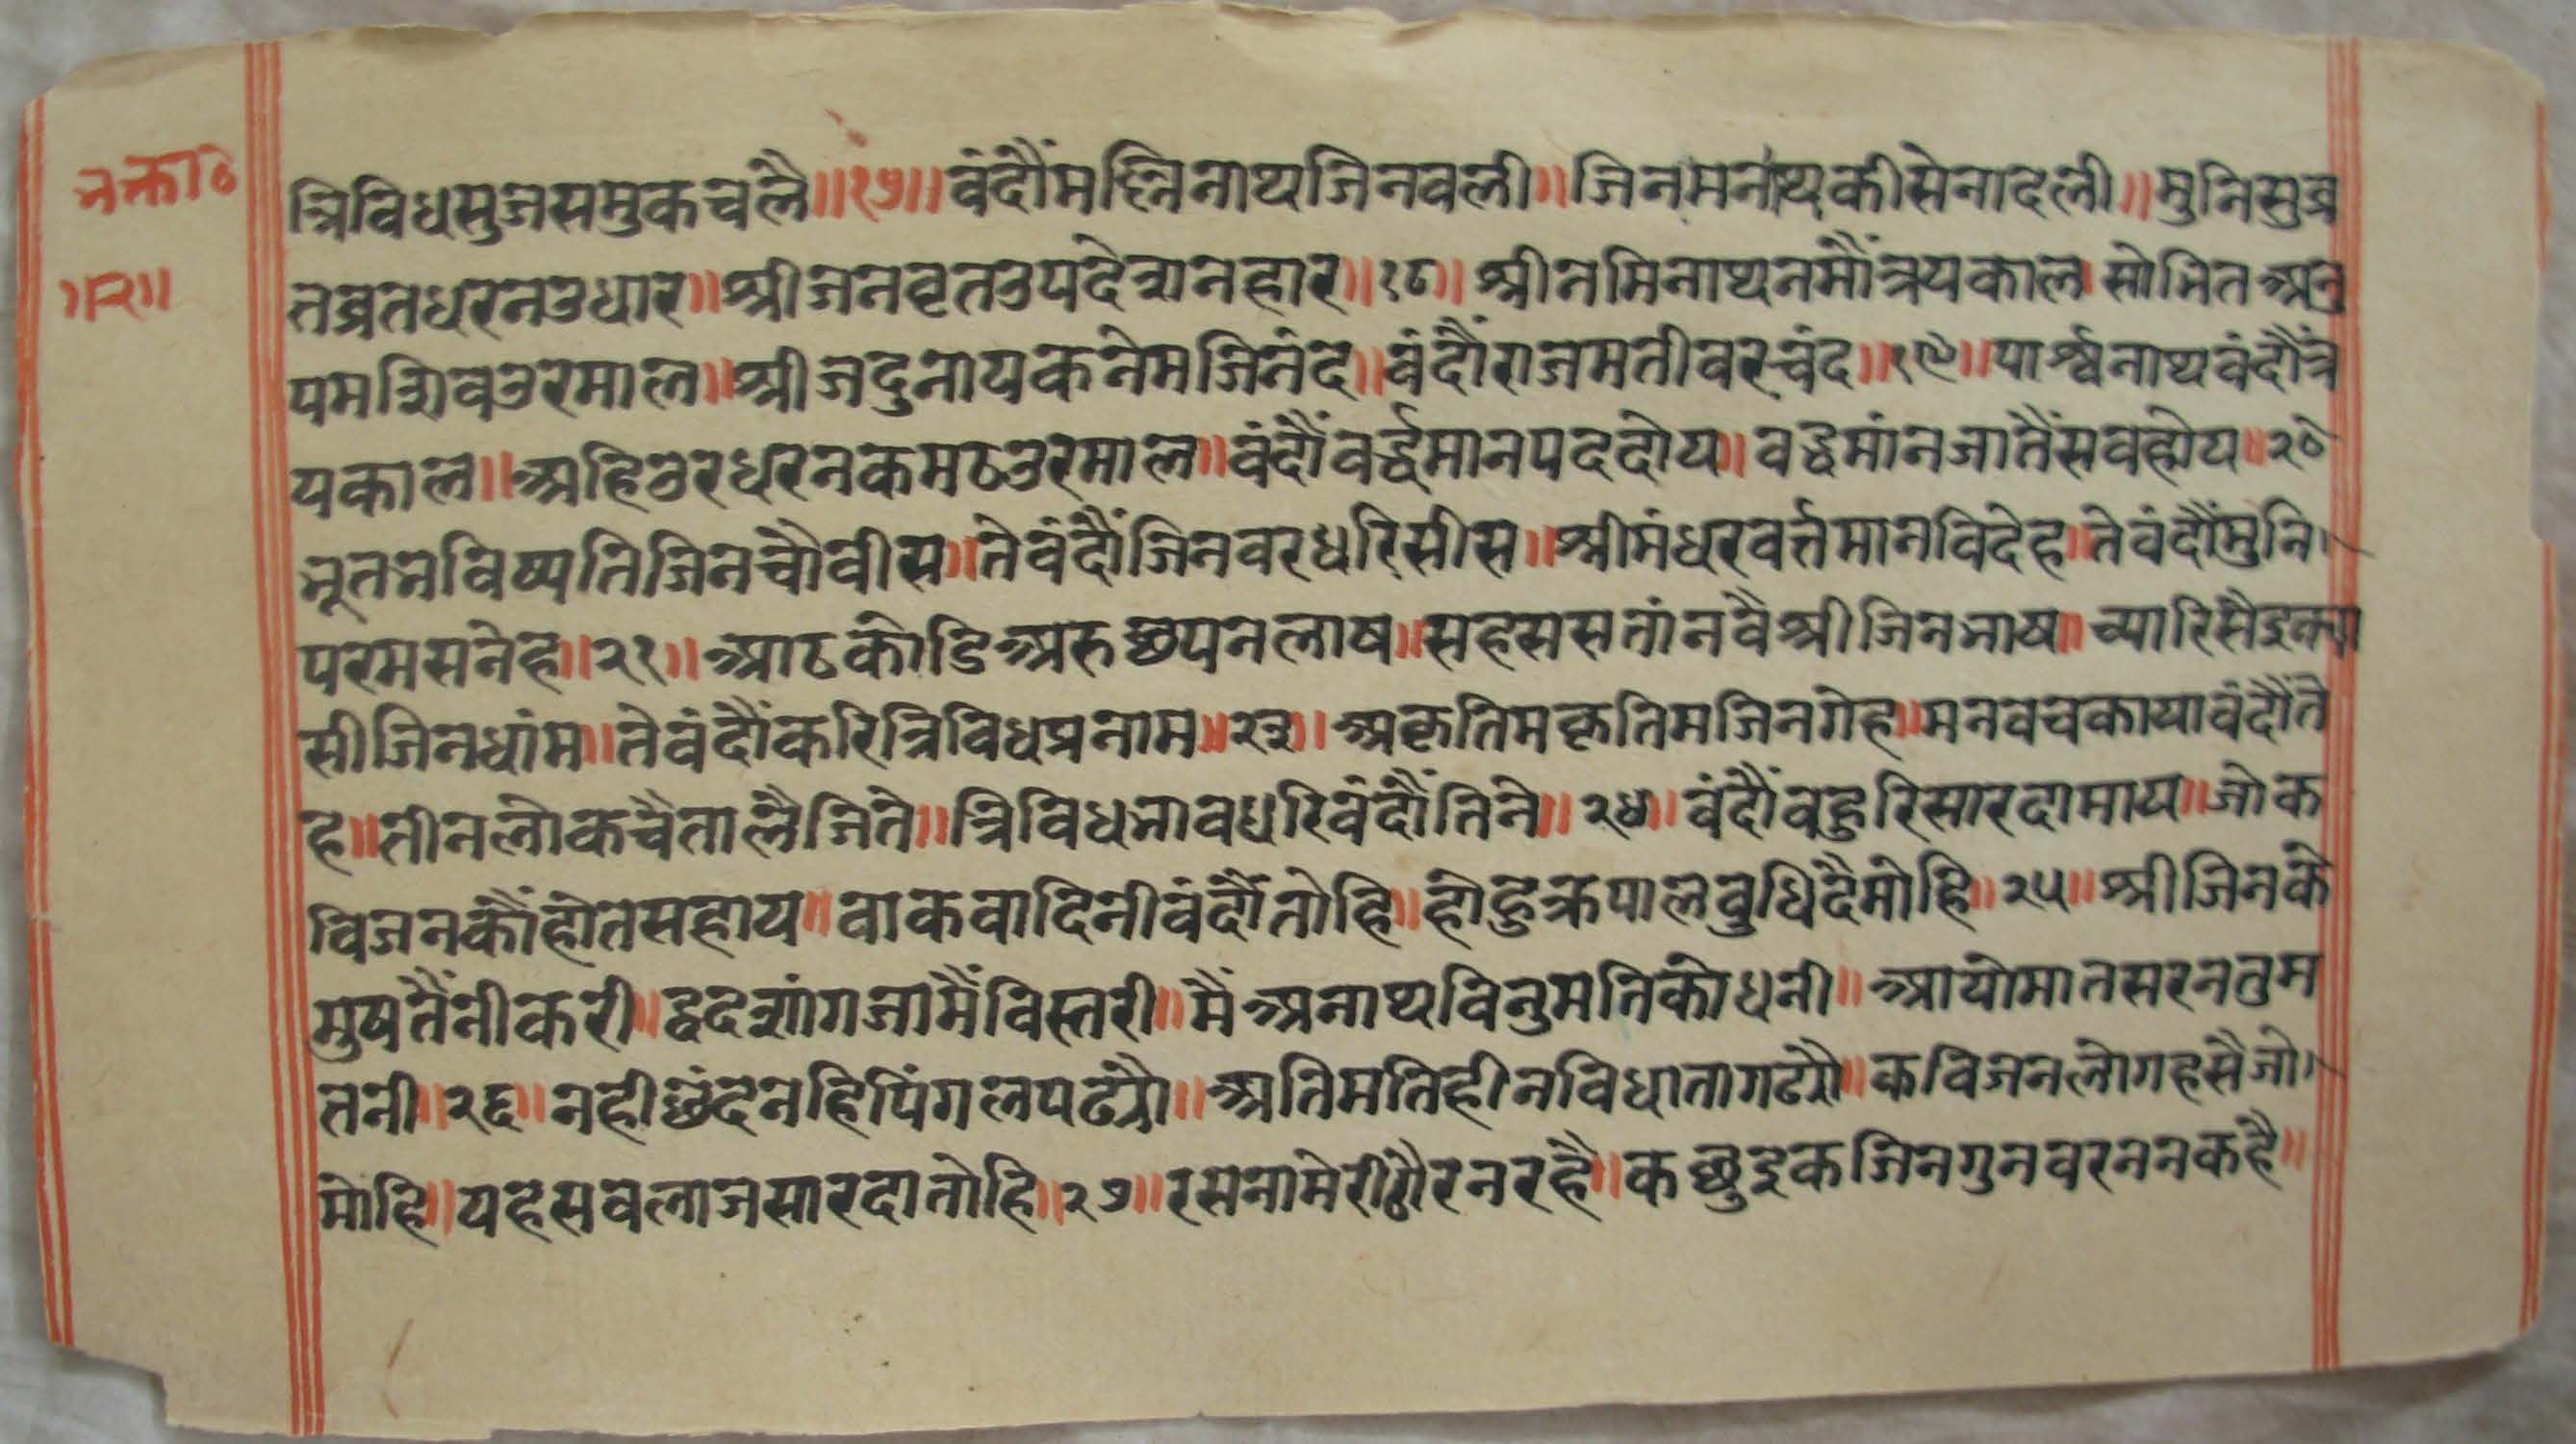 भक्ता०
॥२॥
त्रिविधसुजसमुकचलै॥१७॥वंदौंमल्लिनाथजिनवली॥जिनमनाथकीसेनादली॥मुनिसुव्र
तव्रतधरनउधार॥श्रीजनवृतउपदेशनहार॥१८॥श्रीनमिनाथनमौंत्रयकाल।सोभितअनु
पमशिवउरमाल॥श्रीजदुनायकनेमजिनंद॥वंदौंराजमतीवरचंद॥१९॥पार्श्वनाथवंदौंत्र
यकाल॥अहिउरधरनकमठउरमाल॥वंदौंवर्द्धमानपददोय॥वद्धमांनजातैंसवहोय॥२०
भूतभविष्यतिजिनचौवीस॥तेवंदौंजिनवरधरिसीस॥श्रीमंधरवर्त्तमानविदेह॥तेवंदौंमुनि।
परमसनेह॥२१॥आठकोडिअरुछपनलाष॥सहससतांनवैश्रीजिनभाष॥च्यारिसैइक्या
सीजिनधांम॥तेवंदौंकरित्रिविधप्रनाम॥२३॥अकृतिमकृतिमजिनगेह॥मनवचकायावंदौंते
ह॥तीनलोकचैतालैजिते॥त्रिविधभावधरिवंदौंतिते॥२४॥वंदौंवहुरिसारदामाय॥जोक
विजनकौंहोतसहाय॥वाकवादिनीवंदौंतोहि॥होहुक्रपालवुधिदैमोहि॥२५॥श्रीजिनके
मुषतैंनीकरी॥द्वदशांगजामैंविस्तरी॥मैंअनाथविनुमतिकोधनी॥आयोमातसरनतुम
तनी॥२६॥नहीछंदनहिपिंगलपढ्यौ॥अतिमतिहीनविधातागढ्यौ॥कविजनलोगहसैजो।
मोहि॥यहसवलाजसारदातोहि॥२७॥रसनामेरीठौरनरहै॥कछुइकजिनगुनवरननकहै॥